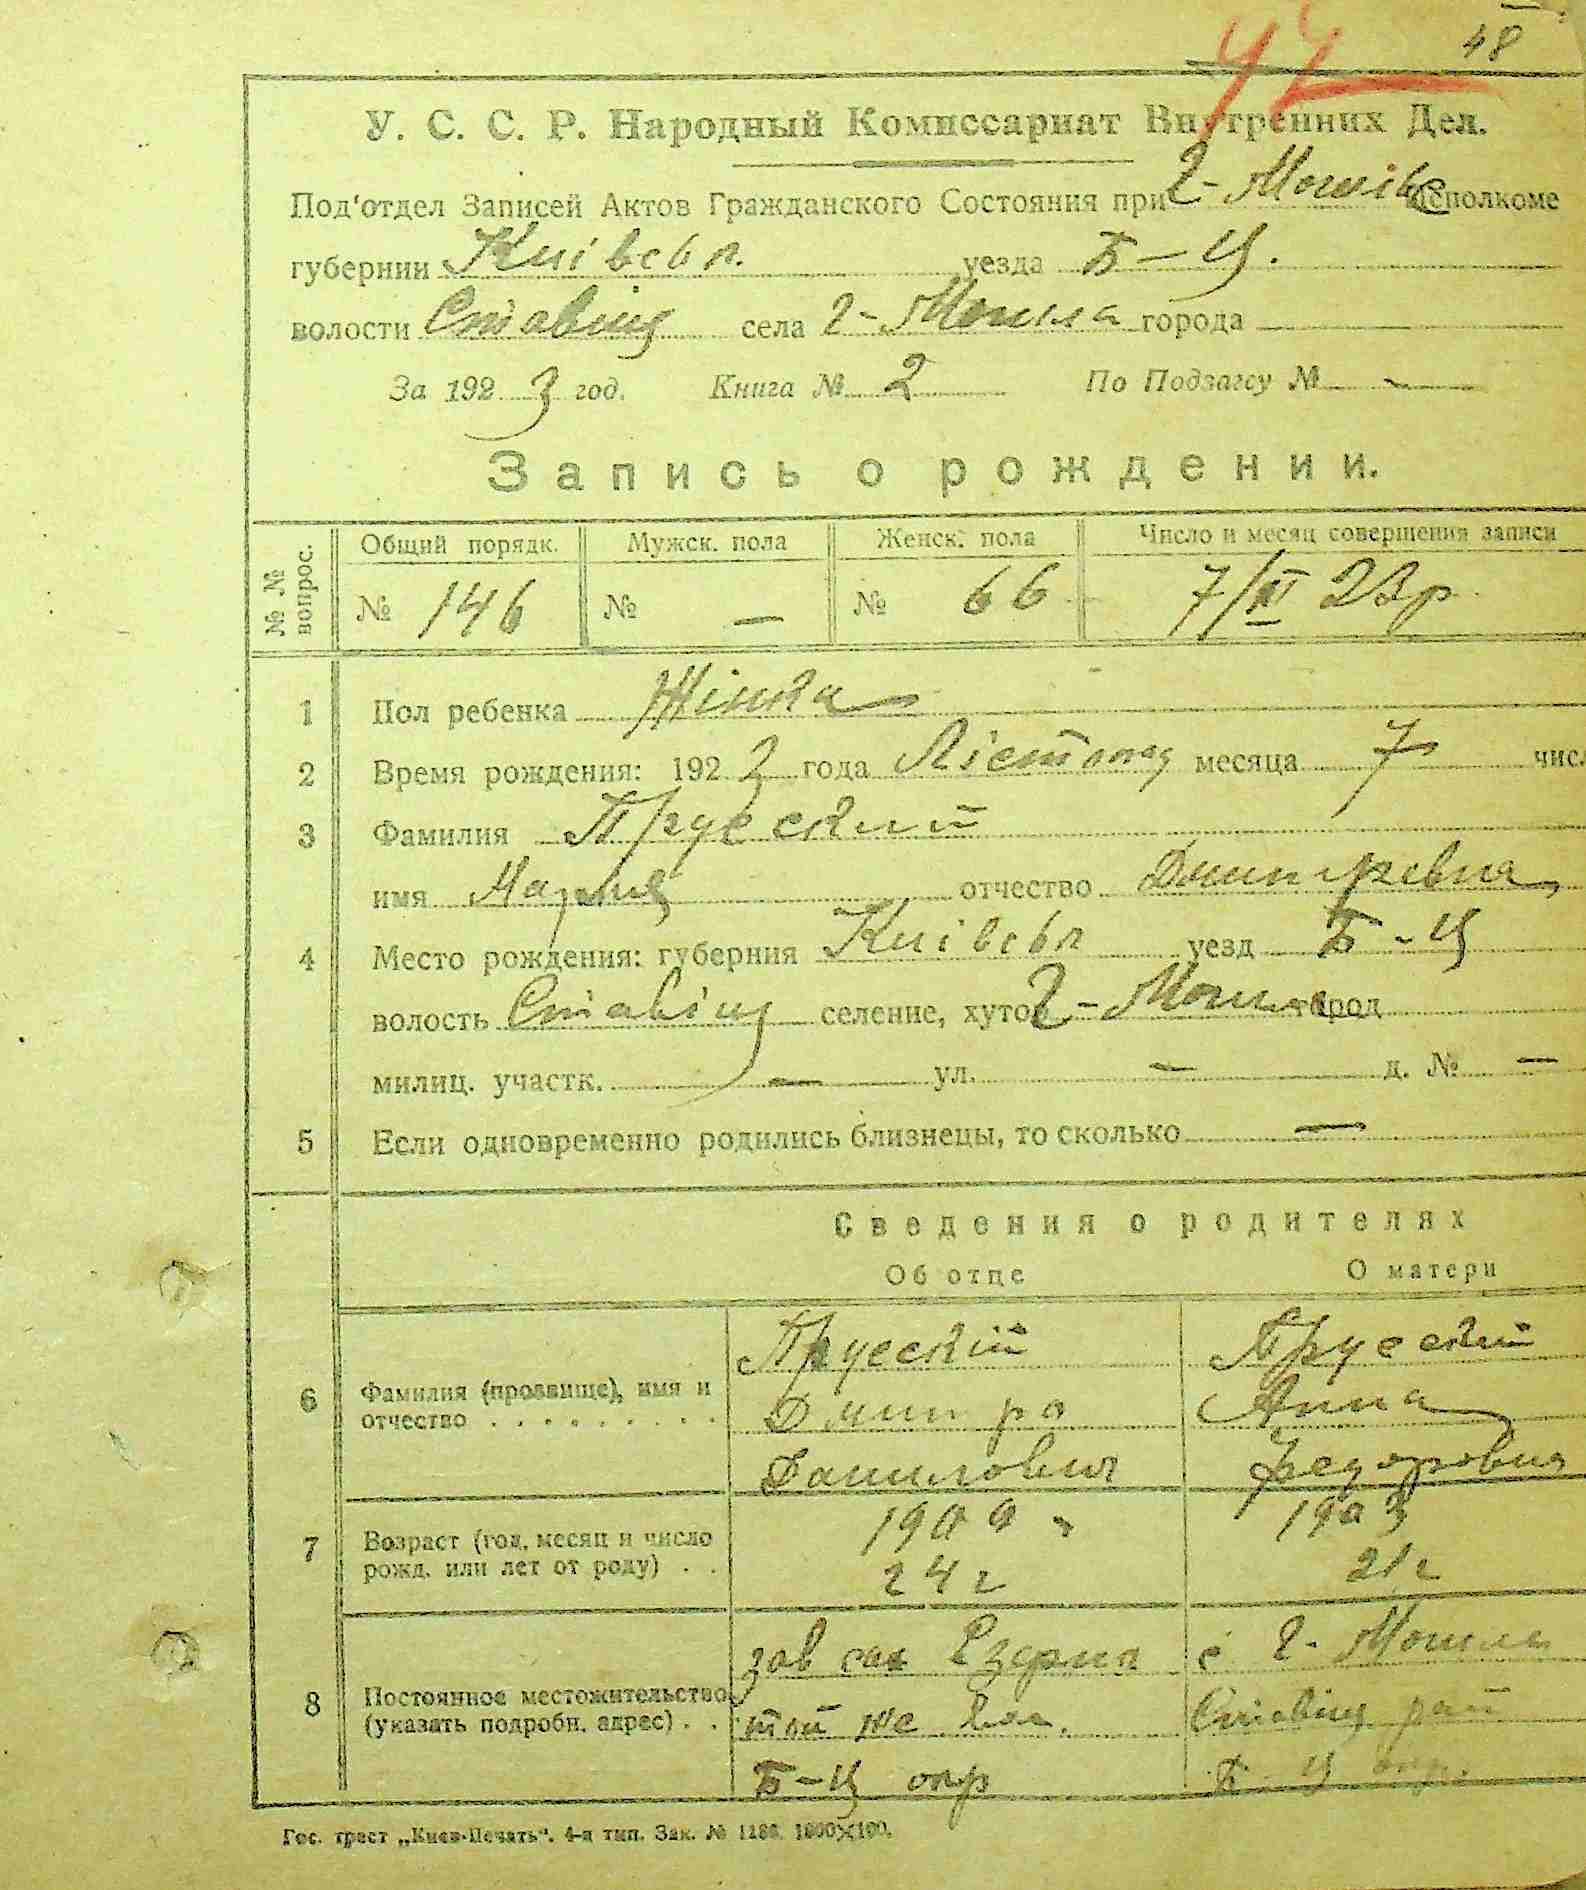 48
42
У. С. С. Р. Народный Комиссариат Внутренних Дел.
Под'отдел Записей Актов Гражданского Состояния при Исполкоме
губернии Київськ. уезда Б-Ц.
волости Ставищ села города
За 1923 год. Книга № 2 По Подзагсу № -
Запись о рождении.
№ № вопрос. Общий порядк. Мужск. пола Женск. пола Число и месяц совершения записи
№ 146 № — № 66 23р.
1 Пол ребенка Жінка
2 Время рождения: 1923 года Лістопад месяца 7 числ
3 Фамилия Пруський
имя отчество Дмитревна
4 Место рождения: губерния Київськ уезд Б-Ц
волость Ставищ селение, хутор город
милиц. участк. — ул. — д. № —
5 Если одновременно родились близнецы, то сколько —
Сведения о родителях
Об отце О матери
6 Фамилия (прозвище), имя и отчество Пруський Пруський
Дмитро Анна
Данилович Федоровна
7 Возраст (год, месяц и число рожд. или лет от роду) 1903
24 г 21 г
8 Постоянное местожительство (указать подробн. адрес)
той же вол. Ставищ. рай
Б-Ц окр Б-Ц окр.
Гос. трест „Киев-Печать". 4-я тип. Зак. № 1186. 1000×100.